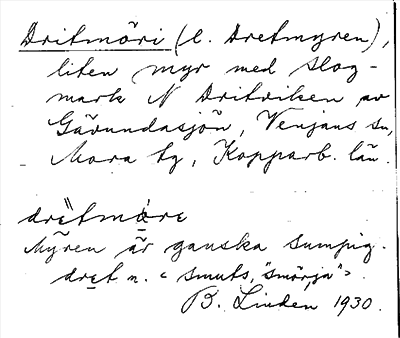 Dritmöri (l. Dretmyren),
liten myr med slog-
mark N Dritviken av
Gävundasjön, Venjans sn,
Mora tg, Kopparb. län.
drëtmö̀rɛ
Myren är ganska sumpig.
dret n. < smuts, "smörja" >.
B. Linden 1930.